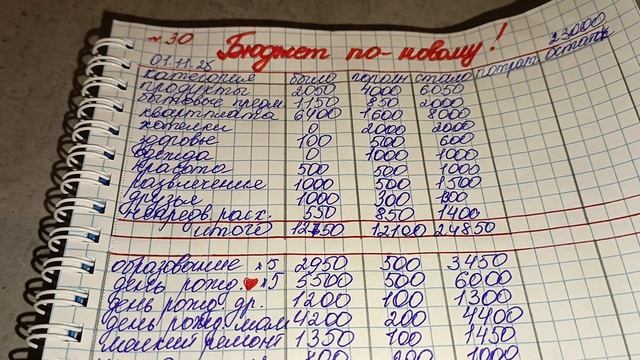 ~ 30 Бюджет по-новому! 23000
01.11.25
категория было попол стало потрат. остаток
продукты 2050 4000 6050
бытовые, пром 1150 850 2000
квартплата 6400 1600 8000
хотелки 0 2000 2000
здоровье 100 500 600
одежда 0 1000 1000
красота 500 500 1000
развлечение 1000 500 1500
друзья 1000 300
непредв. расх. 550 850 1400
итого 12750 12100 24850
образование x5 2950 500 3450
день рожд. ❤ x5 5500 500 6000
день рожд. др. 1200 100 1300
день рожд. мам 4200 200 4400
мелкий ремонт 1350 100 1450
800 200 1000